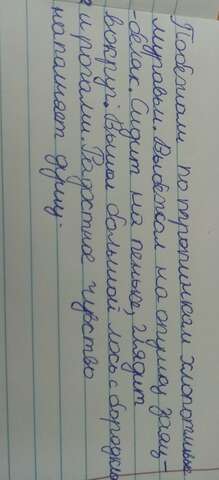 Побежали по тропинкам хлопотливые
муравьи. Выбежал на опушку заяц-
-беляк. Сидит на пеньке, глядит
вокруг. Вышел большой лось с бородкой
и рогами. Радостное чувство
наполняет душу.